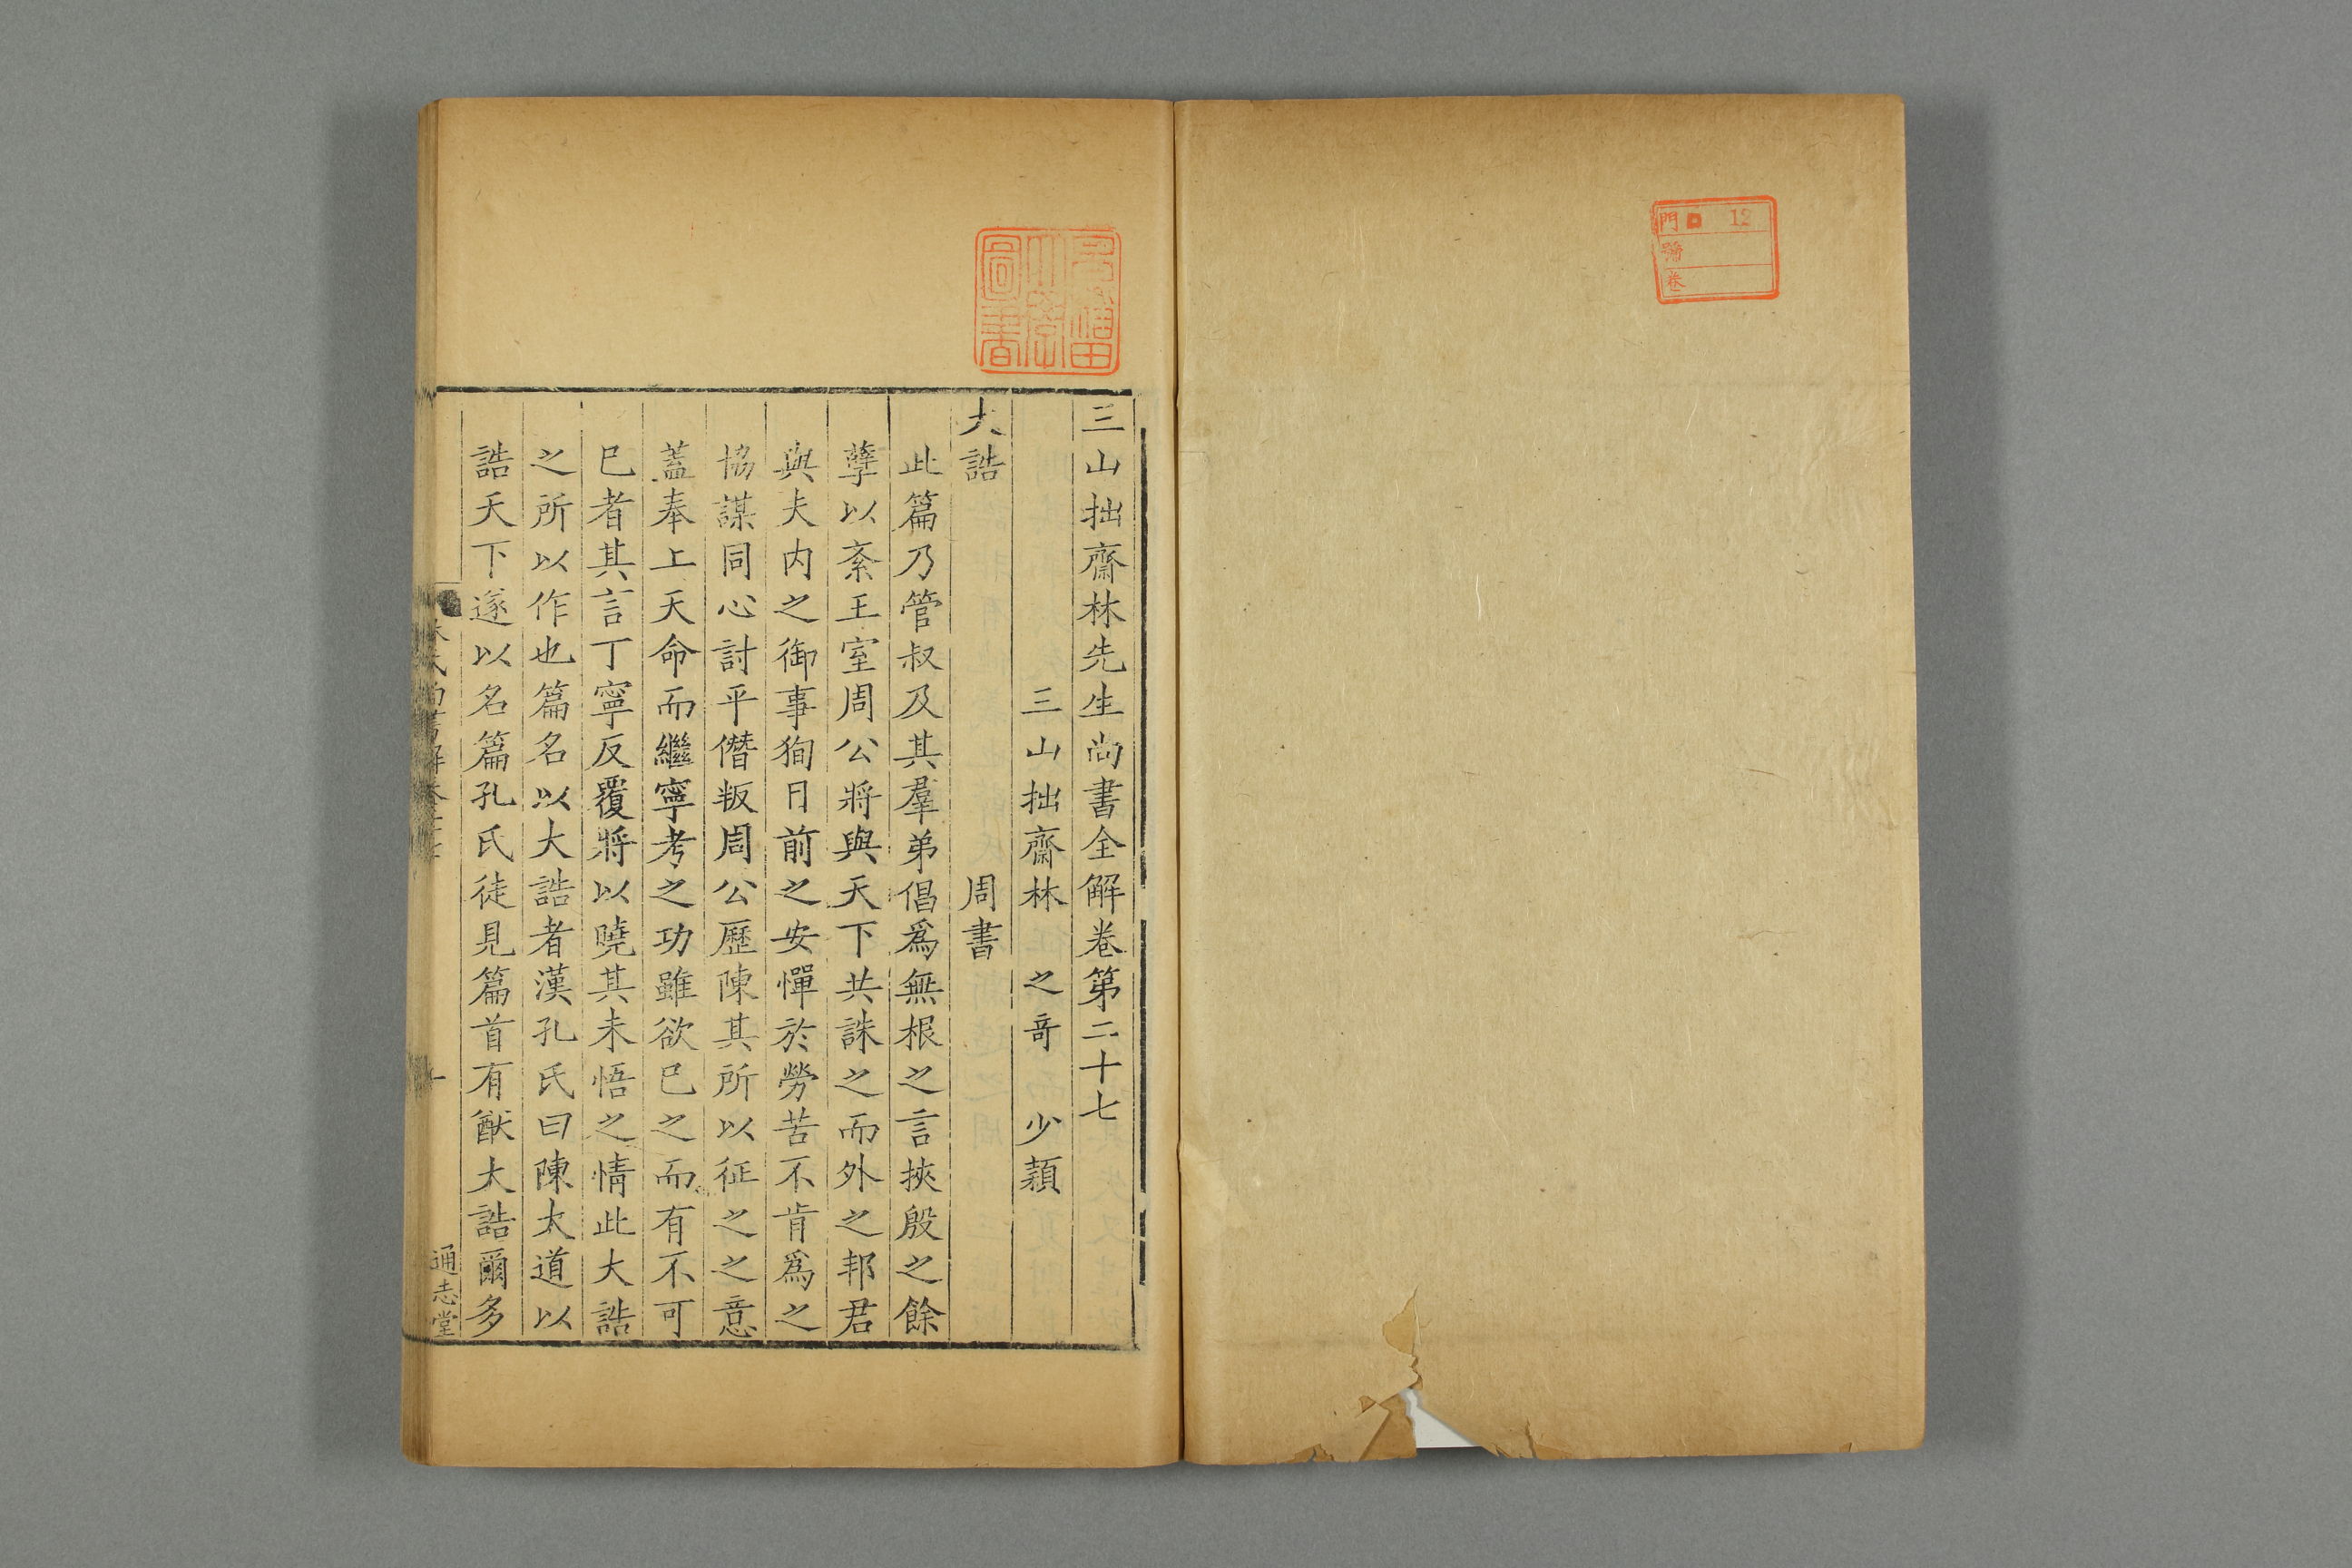 門 12
號
卷
三山拙齋林先生尚書全解卷第二十七
三山拙齋林 之奇 少穎
大誥 周書
此篇乃管叔及其羣弟倡爲無根之言挾殷之餘
孽以紊王室周公將與天下共誅之而外之邦君
與夫内之御事狥日前之安憚於勞苦不肯爲之
協謀同心討平僭叛周公歷陳其所以征之之意
蓋奉上天命而繼寧考之功雖欲巳之而有不可
巳者其言丁寧反覆將以曉其未悟之情此大誥
之所以作也篇名以大誥者漢孔氏曰陳太道以
誥天下遂以名篇孔氏徒見篇首有猷大誥爾多
通志堂